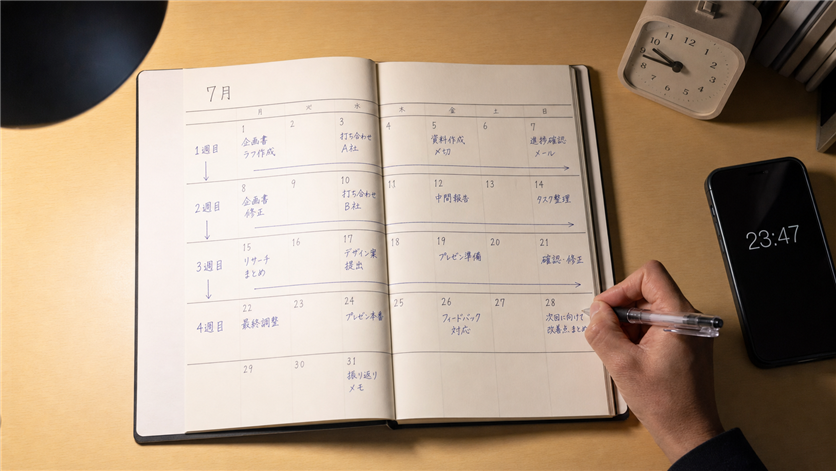 7月
月 火 水 木 金 土 日
1 2 3 4 5 6 7
1週目 企画書 打ち合わせ 資料作成 進捗確認
ラフ作成 A社 〆切 メール
8 9 10 11 12 13 14
2週目 企画書 打ち合わせ 中間報告 タスク整理
修正 B社
15 16 17 18 19 20 21
3週目 リサーチ デザイン案 プレゼン準備 確認・修正
まとめ 提出
22 23 24 25 26 27 28
4週目 最終調整 プレゼン本番 フィードバック 次回に向けて
対応 改善点まとめ
29 30 31
振り返り
メモ
12
1
2
3
4
5
6
7
8
9
10
11
23:47